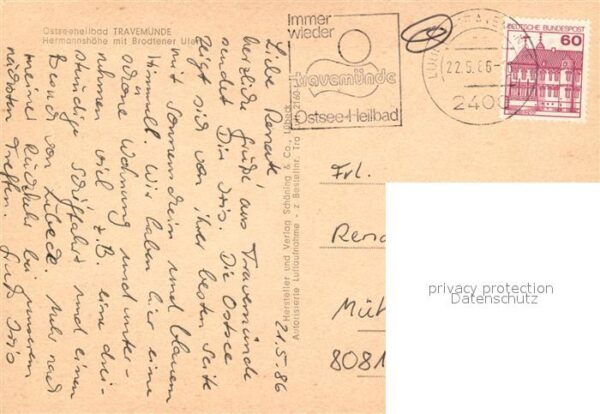 Ostseeheilbad TRAVEMÜNDE
Hermannshöhe mit Brodtener Ufer
Immer
wieder
travemünde
Ostsee-Heilbad
22.5.86
2400
DEUTSCHE BUNDESPOST
60
21.5.86
Liebe Renate,
herzliche Grüße aus Travemünde
sendet Dir Iris. Die Ostsee
zeigt sich von ihrer besten Seite
mit Sonnenschein und blauem
Himmel. Wir haben hier eine
schöne Wohnung und unter-
nehmen viel z.B. eine drei-
stündige Schiffahrt und einen
Besuch von Lübeck. Mehr nach
meiner Rückkehr bei unserem
nächsten Treffen.
Gruß Iris
Hersteller und Verlag Schöning & Co., Lübeck
Autorisierte Luftaufnahme - z Bestellnr. Tra
Frl.
Rena
Mü
8081
privacy protection
Datenschutz